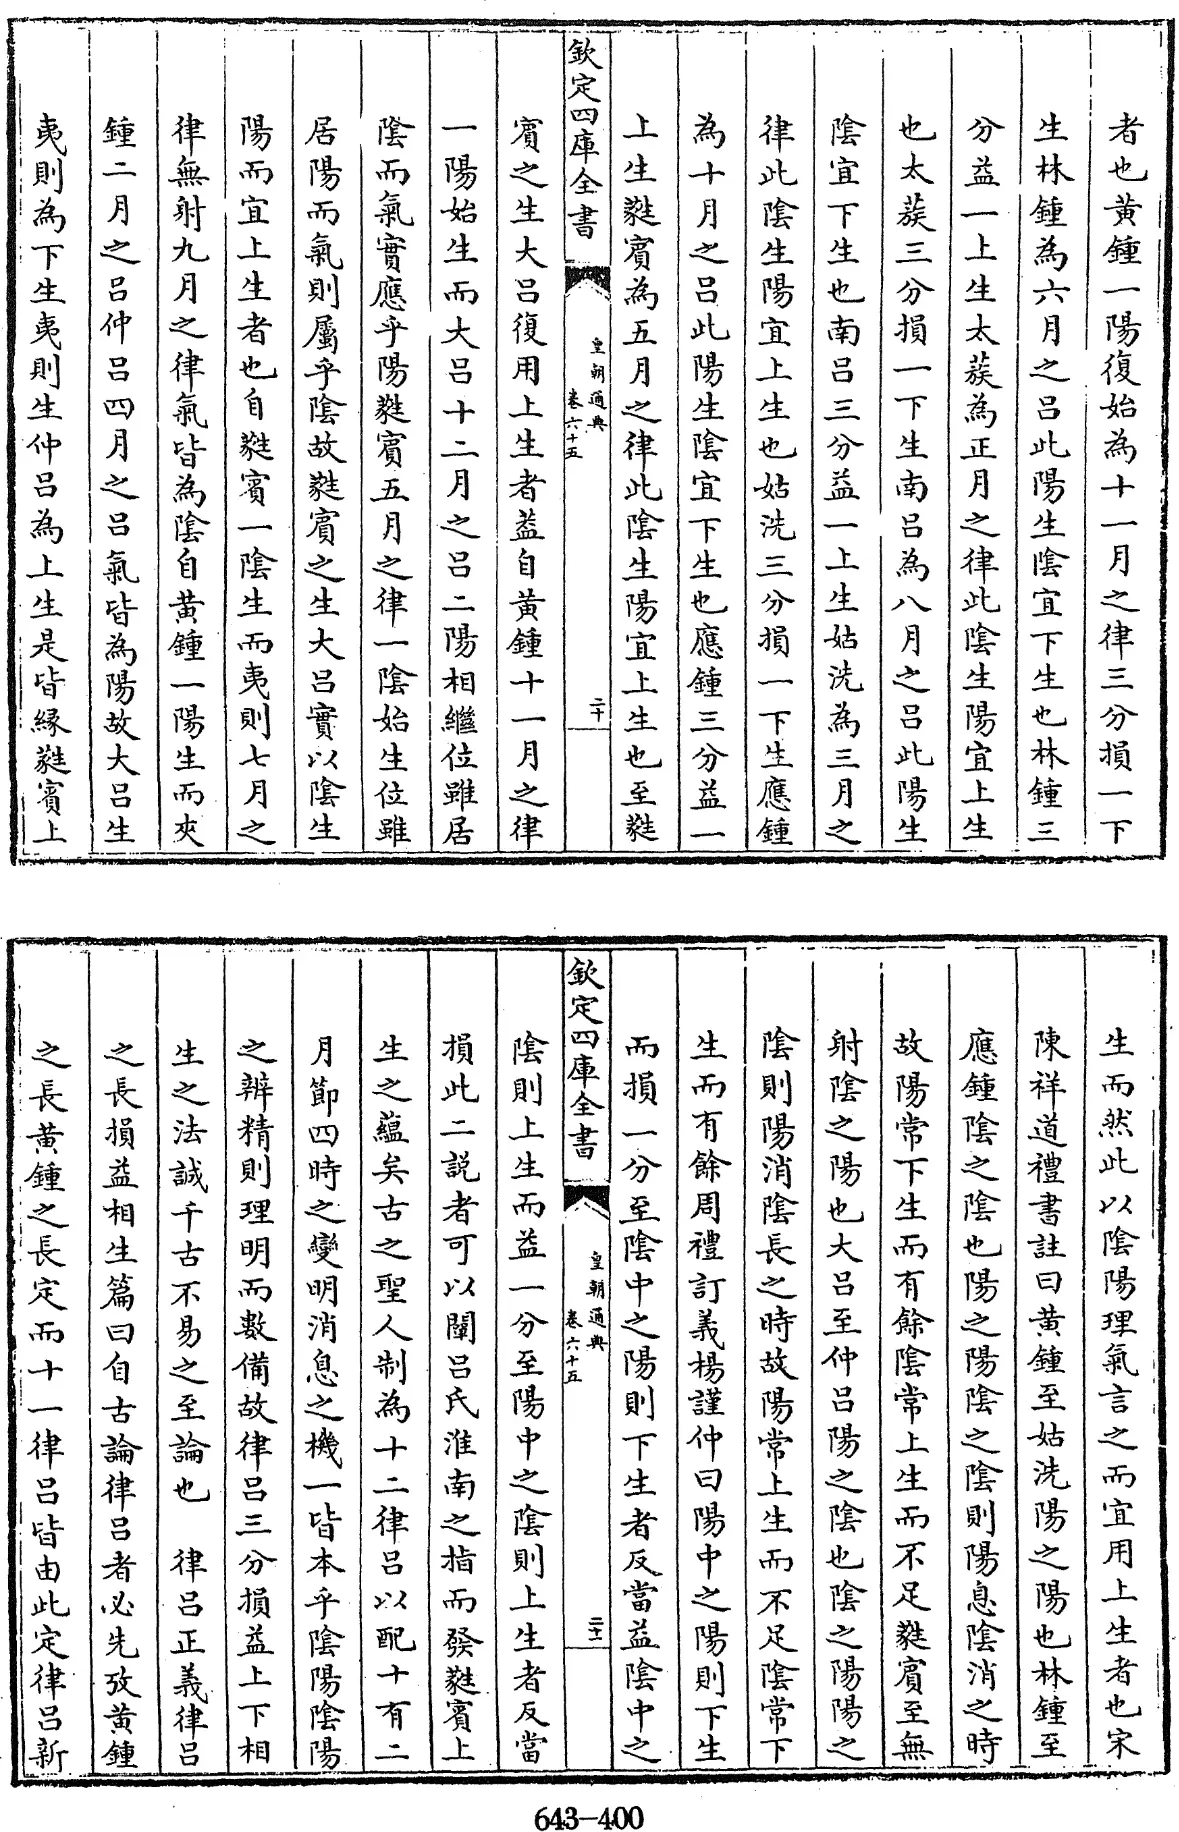 者也黃鍾一陽復始為十一月之律三分損一下
生林鍾為六月之呂此陽生陰宜下生也林鍾三
分益一上生太蔟為正月之律此陰生陽宜上生
也太蔟三分損一下生南呂為八月之呂此陽生
陰宜下生也南呂三分益一上生姑洗為三月之
律此陰生陽宜上生也姑洗三分損一下生應鍾
為十月之呂此陽生陰宜下生也應鍾三分益一
上生蕤賓為五月之律此陰生陽宜上生也至蕤
欽定四庫全書
皇朝通典
卷六十五
二十
賓之生大呂復用上生者葢自黃鍾十一月之律
一陽始生而大呂十二月之呂二陽相繼位雖居
陰而氣實應乎陽蕤賓五月之律一陰始生位雖
居陽而氣則屬乎陰故蕤賓之生大呂實以陰生
陽而宜上生者也自蕤賓一陰生而夷則七月之
律無射九月之律氣皆為陰自黃鍾一陽生而夾
鍾二月之呂仲呂四月之呂氣皆為陽故大呂生
夷則為下生夷則生仲呂為上生是皆緣蕤賓上
生而然此以陰陽理氣言之而宜用上生者也宋
陳祥道禮書註曰黃鍾至姑洗陽之陽也林鍾至
應鍾陰之陰也陽之陽陰之陰則陽息陰消之時
故陽常下生而有餘陰常上生而不足蕤賓至無
射陰之陽也大呂至仲呂陽之陰也陰之陽陽之
陰則陽消陰長之時故陽常上生而不足陰常下
生而有餘周禮訂義楊謹仲曰陽中之陽則下生
而損一分至陰中之陽則下生者反當益陰中之
欽定四庫全書
皇朝通典
卷六十五
二十一
陰則上生而益一分至陽中之陰則上生者反當
損此二說者可以闡呂氏淮南之指而發蕤賓上
生之蘊矣古之聖人制為十二律呂以配十有二
月節四時之變明消息之機一皆本乎陰陽陰陽
之辨精則理明而數備故律呂三分損益上下相
生之法誠千古不易之至論也　律呂正義律呂
之長損益相生篇曰自古論律呂者必先攷黃鍾
之長黃鍾之長定而十一律呂皆由此定律呂新
643-400